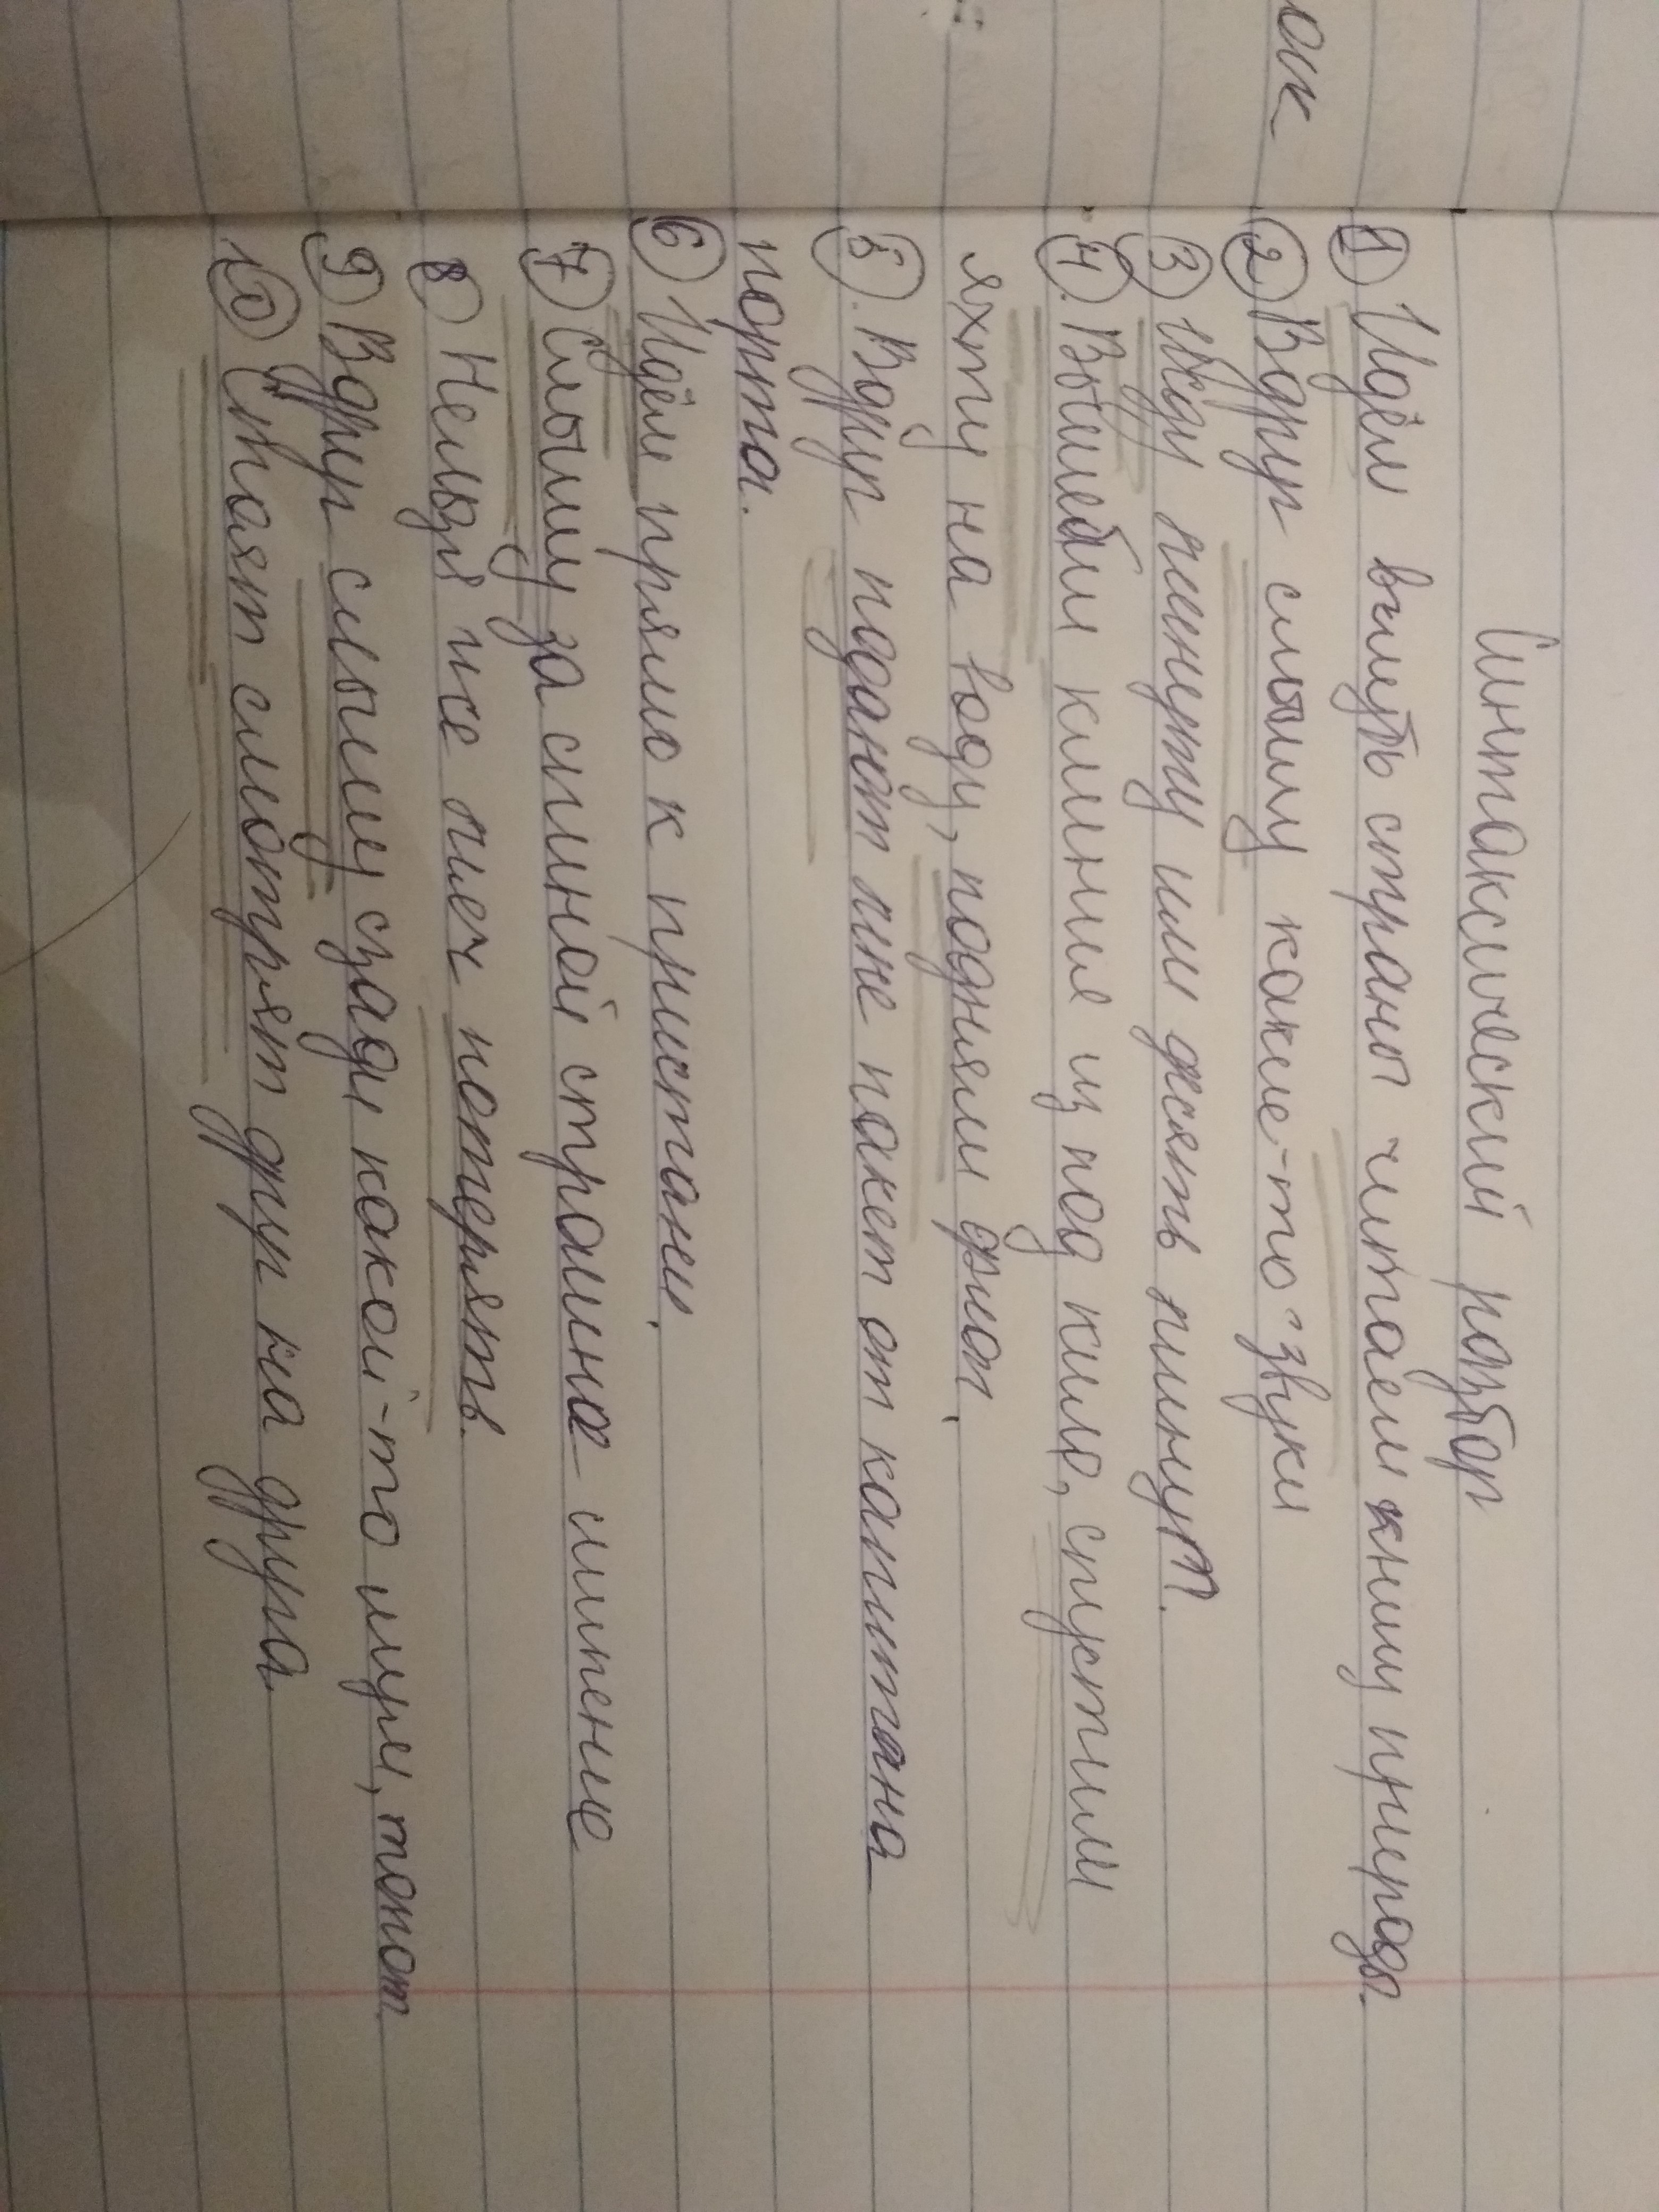 ок
Синтаксический разбор
1 Идём вглубь страны читаем книгу природы.
2 Вдруг слышу какие-то звуки
3 Жду минуту или десять минут.
4. Вышебли клинче из под киле, спустили
яхту на воду, подняли флаг.
5. Вдруг подают мне пакет от капитана
порта.
6 Идём прямо к пристани.
7 Слышу за спиной страшное шипение
8 Нельзя же меч потерять.
9 Вдруг слышу сзади какой-то шум, топот.
10 Стоят смотрят друг на друга.